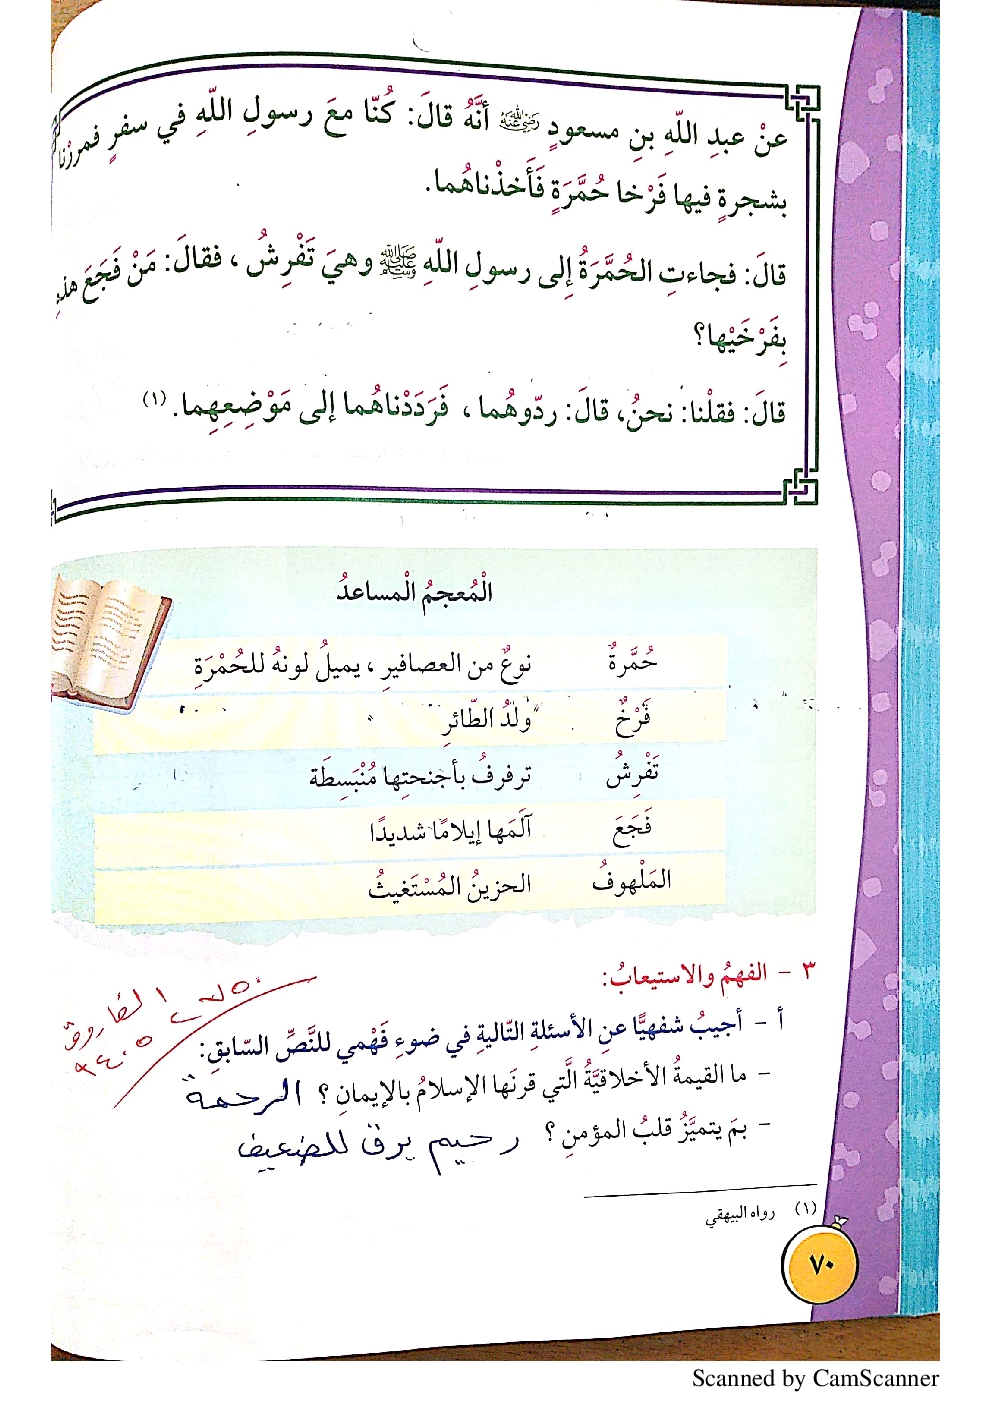 عنْ عبدِ اللّهِ بنِ مسعودٍ رضي الله عنه أنَّهُ قالَ: كُنّا معَ رسولِ اللّهِ في سفرٍ فمررْنا
بشجرةٍ فيها فَرْخا حُمَّرَةٍ فَأَخذْناهُما.
قالَ: فجاءتِ الحُمَّرَةُ إلى رسولِ اللّهِ ﷺ وهيَ تَفْرِشُ ، فقالَ: مَنْ فَجَعَ هذهِ
بِفَرْخَيْها؟
قالَ: فقلْنا: نحنُ، قالَ: ردّوهُما ، فَرَدَدْناهُما إلى مَوْضِعِهِما. (١)
الْمُعجمُ الْمساعدُ
حُمَّرةٌ نوعٌ من العصافيرِ ، يميلُ لونهُ للحُمْرَةِ
فَرْخٌ ولدُ الطّائرِ
تَفْرِشُ ترفرفُ بأجنحتِها مُنْبَسِطَة
فَجَعَ آلَمَها إيلامًا شديدًا
المَلْهوفُ الحزينُ المُسْتَغيثُ
٣ - الفهمُ والاستيعابُ:
أ - أجيبُ شفهيًّا عنِ الأسئلةِ التّاليةِ في ضوءِ فَهْمي للنَّصِّ السّابقِ:
- ما القيمةُ الأخلاقيَّةُ الَّتي قرنَها الإسلامُ بالإيمانِ ؟ الرحمة
- بمَ يتميَّزُ قلبُ المؤمنِ ؟ رحيم يرق للضعيف
(١) رواه البيهقي
٧٠
Scanned by CamScanner